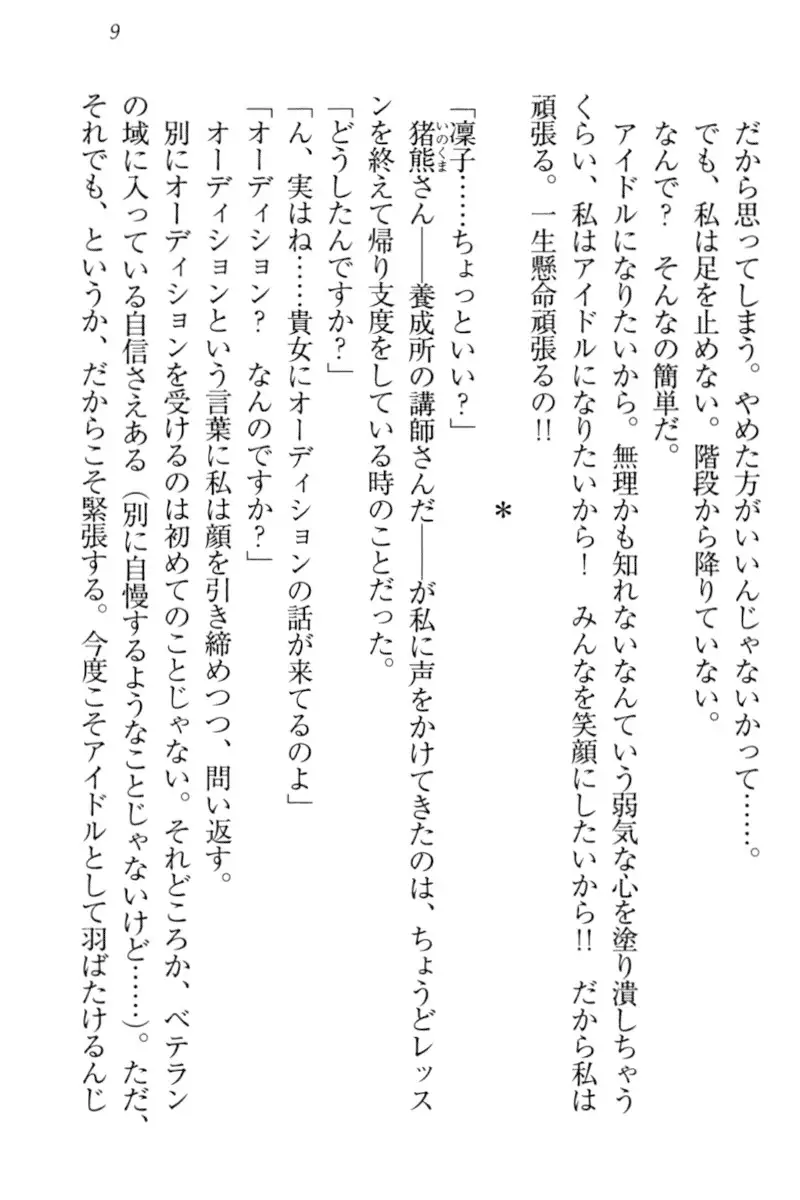 9
だから思ってしまう。やめた方がいいんじゃないかって……。
でも、私は足を止めない。階段から降りていない。
なんで？　そんなの簡単だ。
アイドルになりたいから。無理かも知れないなんていう弱気な心を塗り潰しちゃう
くらい、私はアイドルになりたいから！　みんなを笑顔にしたいから!!　だから私は
頑張る。一生懸命頑張るの!!
＊
「凜子……ちょっといい？」
猪熊さん――養成所の講師さんだ――が私に声をかけてきたのは、ちょうどレッス
いのくま
ンを終えて帰り支度をしている時のことだった。
「どうしたんですか？」
「ん、実はね……貴女にオーディションの話が来てるのよ」
「オーディション？　なんのですか？」
オーディションという言葉に私は顔を引き締めつつ、問い返す。
別にオーディションを受けるのは初めてのことじゃない。それどころか、ベテラン
の域に入っている自信さえある（別に自慢するようなことじゃないけど……）。ただ、
それでも、というか、だからこそ緊張する。今度こそアイドルとして羽ばたけるんじ